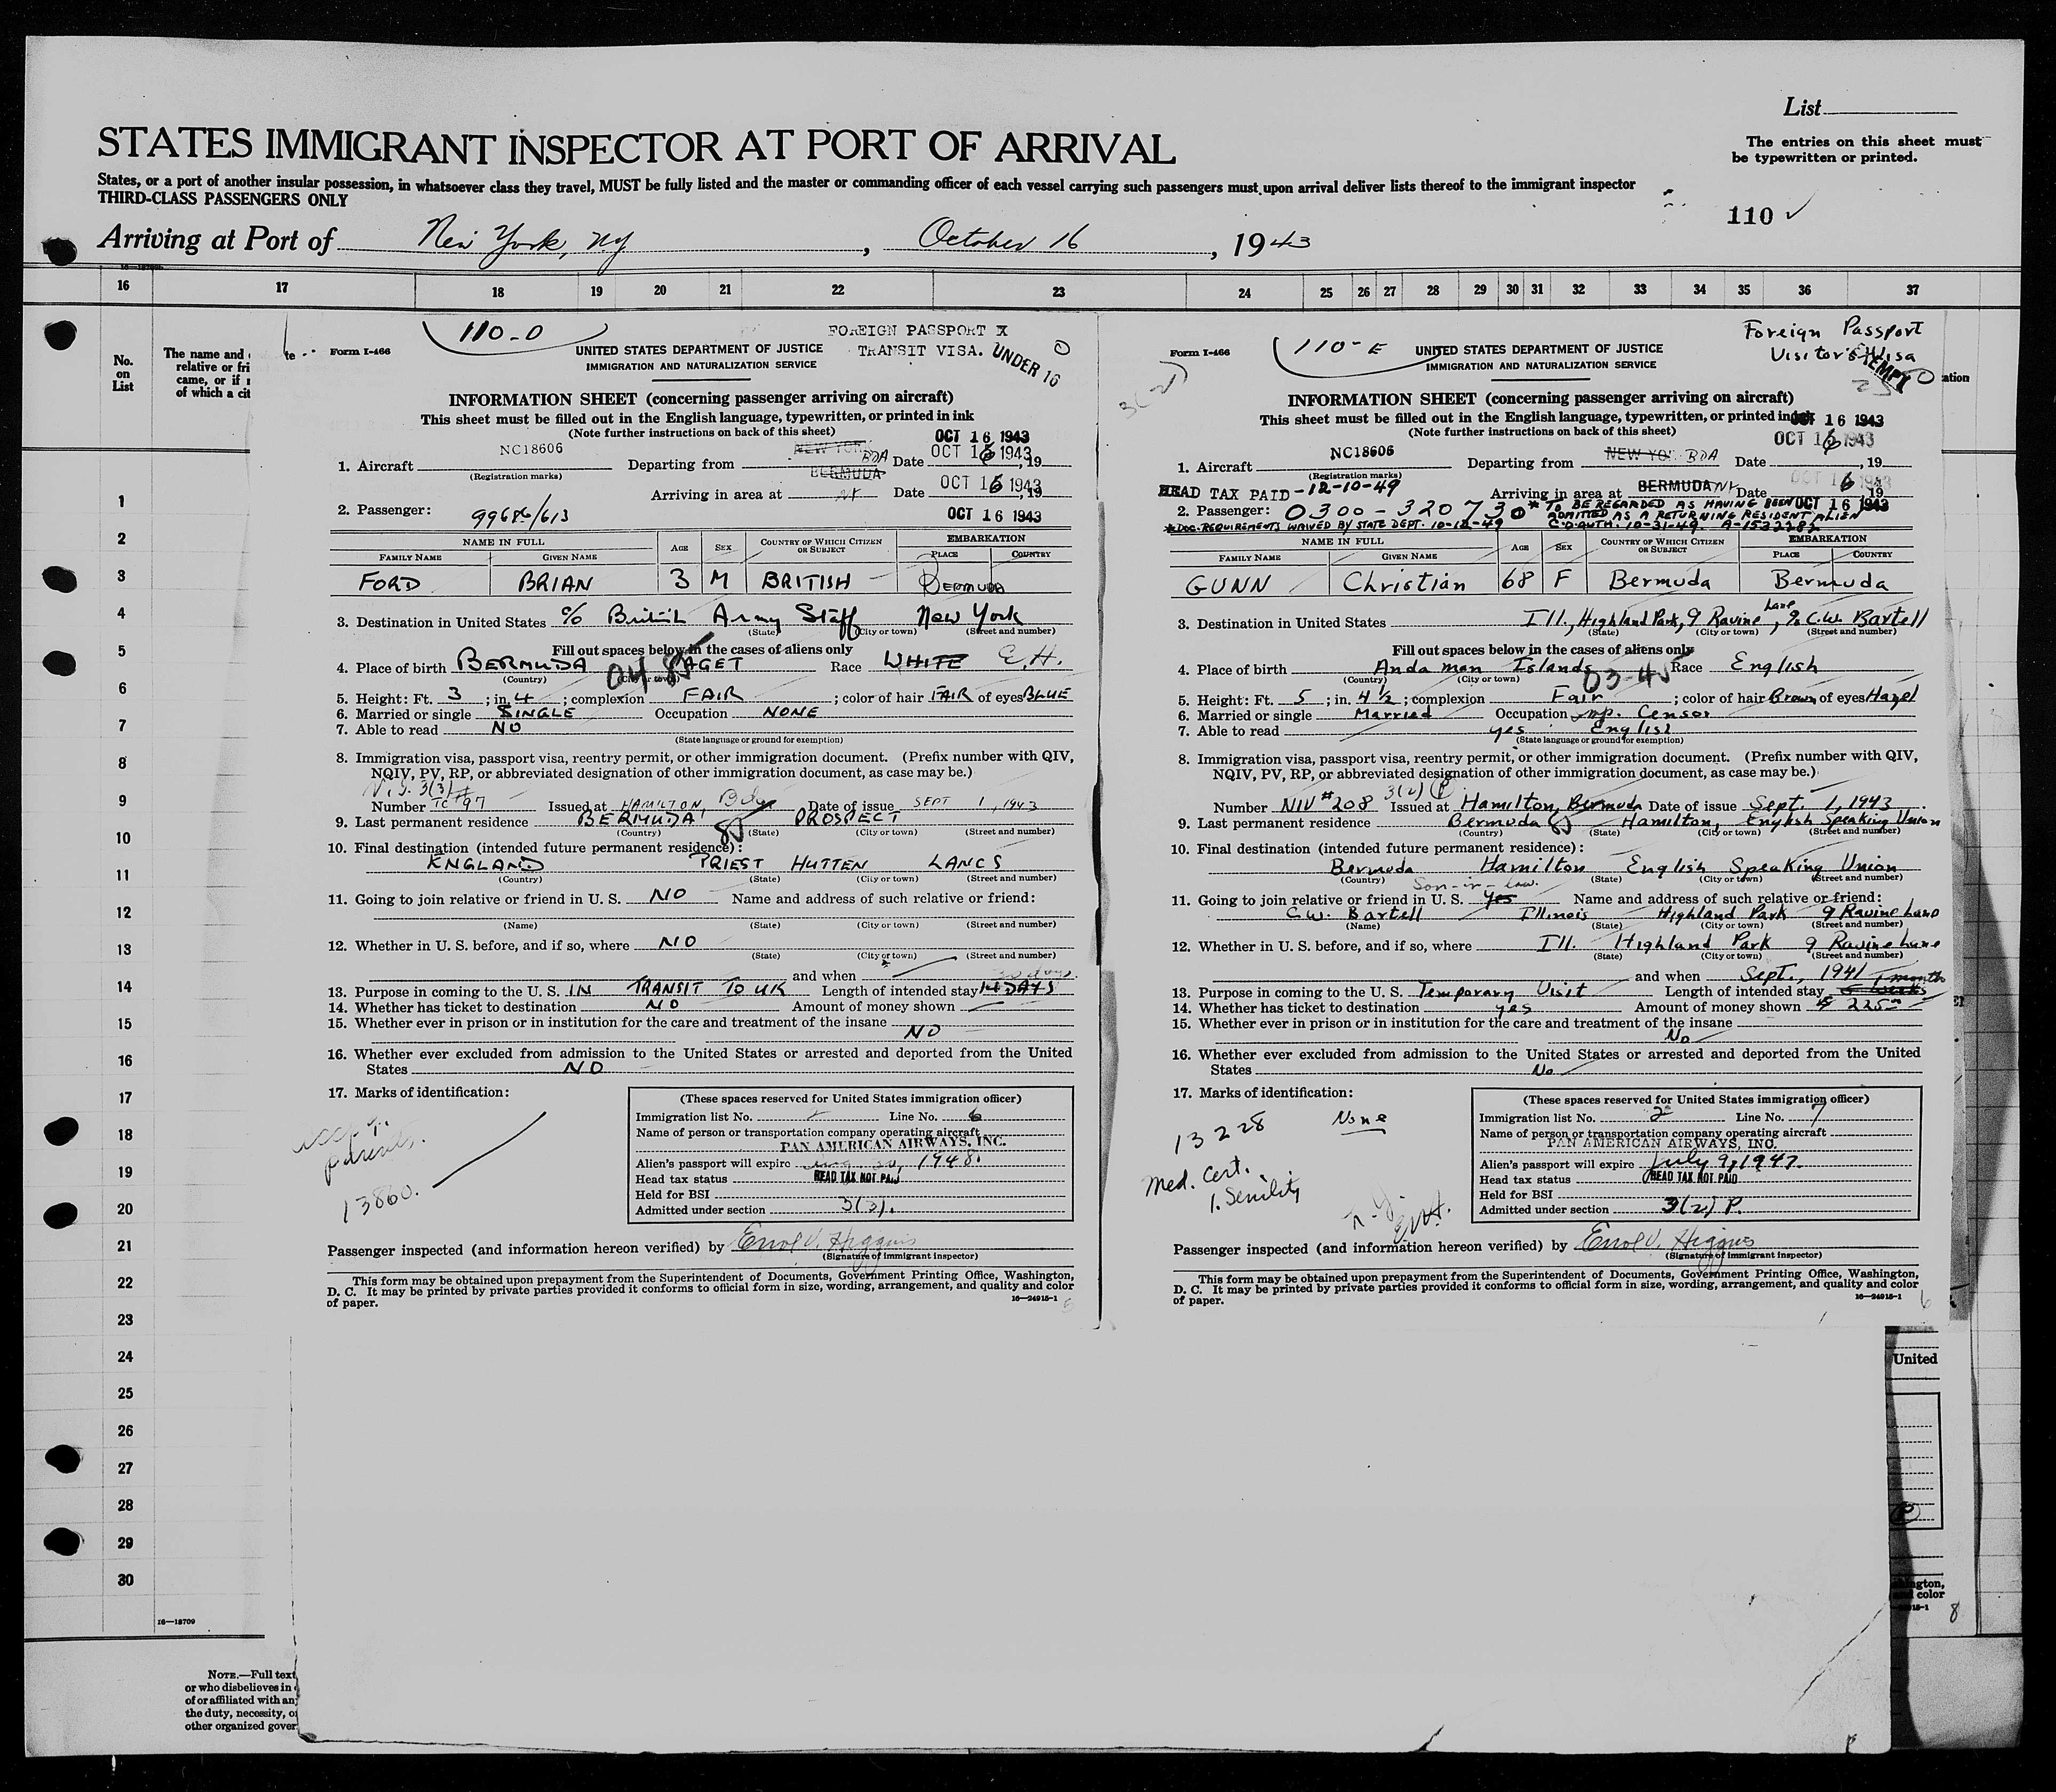 List
STATES IMMIGRANT INSPECTOR AT PORT OF ARRIVAL
The entries on this sheet must
be typewritten or printed.
States, or a port of another insular possession, in whatsoever class they travel, MUST be fully listed and the master or commanding officer of each vessel carrying such passengers must upon arrival deliver lists thereof to the immigrant inspector
THIRD-CLASS PASSENGERS ONLY
110 ✓
Arriving at Port of New York, NY, October 16, 1943
16 17 18 19 20 21 22 23 24 25 26 27 28 29 30 31 32 33 34 35 36 37
No.
on
List
The name and
relative or fri
came, or if
of which a cit
1
2
3
4
5
6
7
8
9
10
11
12
13
14
15
16
17
18
19
20
21
22
23
24
25
26
27
28
29
30
16—18709
NOTE.—Full text
or who disbelieves in
of or affiliated with an
the duty, necessity, o
other organized gover
110-D
FOREIGN PASSPORT X
TRANSIT VISA.
UNDER 16
Form I-466
UNITED STATES DEPARTMENT OF JUSTICE
IMMIGRATION AND NATURALIZATION SERVICE
INFORMATION SHEET (concerning passenger arriving on aircraft)
This sheet must be filled out in the English language, typewritten, or printed in ink
(Note further instructions on back of this sheet)
OCT 16 1943
1. Aircraft NC18606 Departing from NEW YORK BDA Date OCT 16 1943, 19
(Registration marks)
Arriving in area at BERMUDA NY Date OCT 16 1943, 19
2. Passenger: 99686/613 OCT 16 1943
NAME IN FULL AGE SEX COUNTRY OF WHICH CITIZEN OR SUBJECT EMBARKATION
FAMILY NAME GIVEN NAME PLACE COUNTRY
FORD BRIAN 3 M BRITISH BERMUDA
3. Destination in United States c/o British Army Staff New York
(State) (City or town) (Street and number)
Fill out spaces below in the cases of aliens only
4. Place of birth BERMUDA PAGET Race WHITE E.H.
(Country) (City or town)
04 85
5. Height: Ft. 3; in. 4; complexion FAIR; color of hair FAIR of eyes BLUE
6. Married or single SINGLE Occupation NONE
7. Able to read NO
(State language or ground for exemption)
8. Immigration visa, passport visa, reentry permit, or other immigration document. (Prefix number with QIV,
NQIV, PV, RP, or abbreviated designation of other immigration document, as case may be.)
3(3)
Number TC #97 Issued at HAMILTON, Bda Date of issue SEPT 1, 1943
9. Last permanent residence BERMUDA PROSPECT
(Country) (State) (City or town) (Street and number)
85
10. Final destination (intended future permanent residence):
ENGLAND PRIEST HUTTEN LANCS
(Country) (State) (City or town) (Street and number)
11. Going to join relative or friend in U. S. NO Name and address of such relative or friend:
(Name) (State) (City or town) (Street and number)
12. Whether in U. S. before, and if so, where NO
(State) (City or town) (Street and number)
and when
13. Purpose in coming to the U. S. IN TRANSIT TO UK Length of intended stay 14 DAYS
14. Whether has ticket to destination NO Amount of money shown
15. Whether ever in prison or in institution for the care and treatment of the insane
NO
16. Whether ever excluded from admission to the United States or arrested and deported from the United
States NO
17. Marks of identification:
parents.
13860.
(These spaces reserved for United States immigration officer)
Immigration list No. 2 Line No. 6
Name of person or transportation company operating aircraft
PAN AMERICAN AIRWAYS, INC.
Alien's passport will expire 1948.
Head tax status HEAD TAX NOT PAID
Held for BSI
Admitted under section 3(3).
Passenger inspected (and information hereon verified) by Errol V. Higgins
(Signature of immigrant inspector)
This form may be obtained upon prepayment from the Superintendent of Documents, Government Printing Office, Washington,
D. C. It may be printed by private parties provided it conforms to official form in size, wording, arrangement, and quality and color
of paper.
16—24915-1
110-E
Foreign Passport
Visitor's Visa
EXEMPT
3(2)
Form I-466
UNITED STATES DEPARTMENT OF JUSTICE
IMMIGRATION AND NATURALIZATION SERVICE
INFORMATION SHEET (concerning passenger arriving on aircraft)
This sheet must be filled out in the English language, typewritten, or printed in ink
OCT 16 1943
(Note further instructions on back of this sheet)
OCT 16 1943
1. Aircraft NC18606 Departing from NEW YORK BDA Date, 19
(Registration marks)
HEAD TAX PAID -12-10-49
Arriving in area at BERMUDA NY Date OCT 16 1943, 19
2. Passenger: 0300-320730 * TO BE REGARDED AS HAVING BEEN OCT 16 1943
ADMITTED AS A RETURNING RESIDENT ALIEN
* DOC. REQUIREMENTS WAIVED BY STATE DEPT. 10-12-49 C.O. AUTH. 10-31-49. A-1532285
NAME IN FULL AGE SEX COUNTRY OF WHICH CITIZEN OR SUBJECT EMBARKATION
FAMILY NAME GIVEN NAME PLACE COUNTRY
GUNN Christian 68 F Bermuda Bermuda
3. Destination in United States Ill., Highland Park, 9 Ravine Lane, % C.W. Bartell
(State) (City or town) (Street and number)
Fill out spaces below in the cases of aliens only
4. Place of birth Andaman Islands Race English
(Country) (City or town)
03-45
5. Height: Ft. 5; in. 4 1/2; complexion Fair; color of hair Brown of eyes Hazel
6. Married or single Married Occupation Imp. Censor
7. Able to read yes English
(State language or ground for exemption)
8. Immigration visa, passport visa, reentry permit, or other immigration document. (Prefix number with QIV,
NQIV, PV, RP, or abbreviated designation of other immigration document, as case may be.)
3(2) P
Number NIV #208 Issued at Hamilton, Bermuda Date of issue Sept. 1, 1943
9. Last permanent residence Bermuda Hamilton, English Speaking Union
(Country) (State) (City or town) (Street and number)
85
10. Final destination (intended future permanent residence):
Bermuda Hamilton English Speaking Union
(Country) (State) (City or town) (Street and number)
Son-in-law.
11. Going to join relative or friend in U. S. yes Name and address of such relative or friend:
C.W. Bartell Illinois Highland Park 9 Ravine Lane
(Name) (State) (City or town) (Street and number)
12. Whether in U. S. before, and if so, where Ill. Highland Park 9 Ravine Lane
(State) (City or town) (Street and number)
and when Sept., 1941
13. Purpose in coming to the U. S. Temporary Visit Length of intended stay 6 weeks 1 month
14. Whether has ticket to destination yes Amount of money shown $ 225
15. Whether ever in prison or in institution for the care and treatment of the insane
No
16. Whether ever excluded from admission to the United States or arrested and deported from the United
States No
17. Marks of identification:
None
13228
Med. Cert.
1. Senility
N.Y.
(These spaces reserved for United States immigration officer)
Immigration list No. 2 Line No. 7
Name of person or transportation company operating aircraft
PAN AMERICAN AIRWAYS, INC.
Alien's passport will expire July 9, 1947.
Head tax status HEAD TAX NOT PAID
Held for BSI
Admitted under section 3(2) P.
Passenger inspected (and information hereon verified) by Errol V. Higgins
(Signature of immigrant inspector)
This form may be obtained upon prepayment from the Superintendent of Documents, Government Printing Office, Washington,
D. C. It may be printed by private parties provided it conforms to official form in size, wording, arrangement, and quality and color
of paper.
16—24915-1
ation
United
hington,
color
8